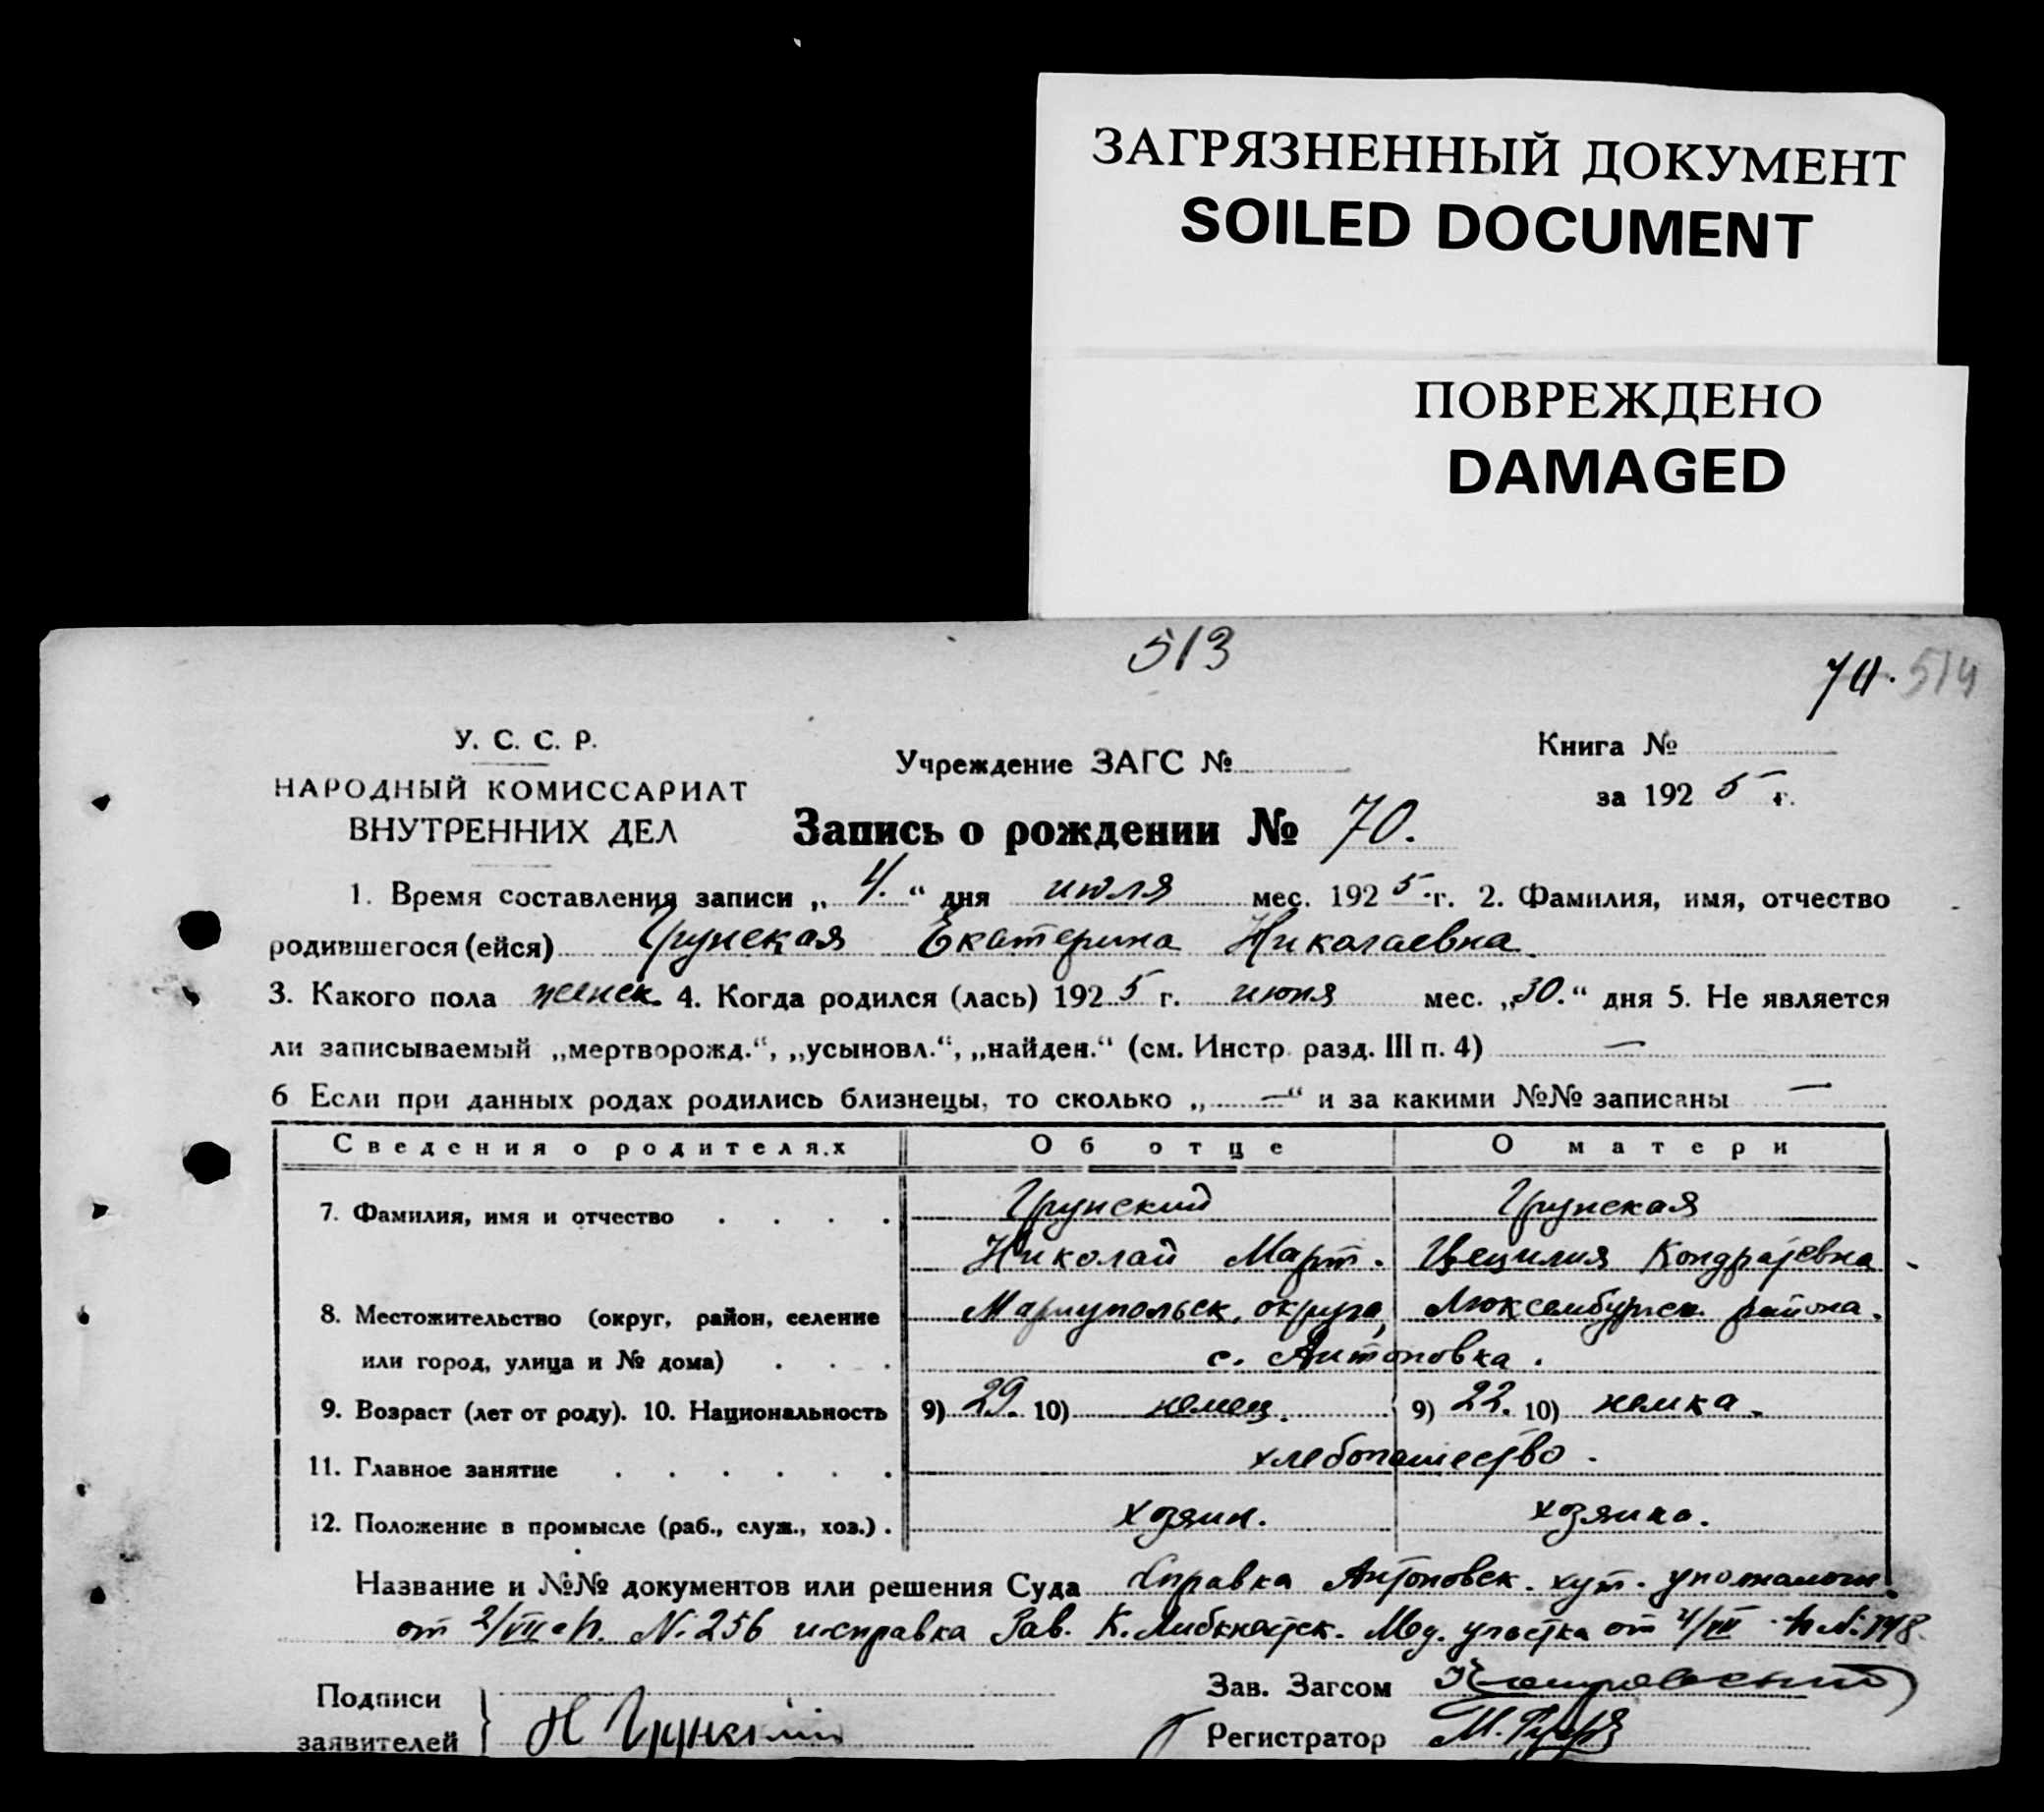 ЗАГРЯЗНЕННЫЙ ДОКУМЕНТ
SOILED DOCUMENT
ПОВРЕЖДЕНО
DAMAGED
513
70. 514
У. С. С. Р.
НАРОДНЫЙ КОМИССАРИАТ
ВНУТРЕННИХ ДЕЛ
Учреждение ЗАГС №
Книга №
за 1925 г.
Запись о рождении № 70.
1. Время составления записи „4.“ дня июля мес. 1925 г. 2. Фамилия, имя, отчество
родившегося (ейся) Грунская Екатерина Николаевна.
3. Какого пола женск. 4. Когда родился (лась) 1925 г. июня мес. „30.“ дня 5. Не является
ли записываемый „мертворожд.“, „усыновл.“, „найден.“ (см. Инстр. разд. III п. 4) —
6 Если при данных родах родились близнецы, то сколько „—“ и за какими №№ записаны —
Сведения о родителях Об отце О матери
7. Фамилия, имя и отчество . . . . Грунский Грунская
Николай Март. Цецилия Кондратевна
8. Местожительство (округ, район, селение Мариупольск. округа, Люксембургск. района.
или город, улица и № дома) . . . с. Антоновка.
9. Возраст (лет от роду). 10. Национальность 9) 29. 10) немец. 9) 22. 10) немка.
11. Главное занятие . . . . . . хлебопашество.
12. Положение в промысле (раб., служ., хоз.) . хозяин. хозяйка.
Название и №№ документов или решения Суда Справка Антоновск. хут. уполномоч.
от 2/VII с/г. №256 и справка Зав. К. Либкнехтск. Мед. участка от 4/VII
Подписи
заявителей } Н Грунский
Зав. Загсом
Регистратор